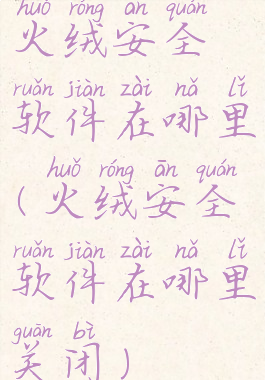 huǒ róng ān quán
火绒安全
ruǎn jiàn zài nǎ lǐ
软件在哪里
huǒ róng ān quán
(火绒安全
ruǎn jiàn zài nǎ lǐ
软件在哪里
guān bì
关闭)